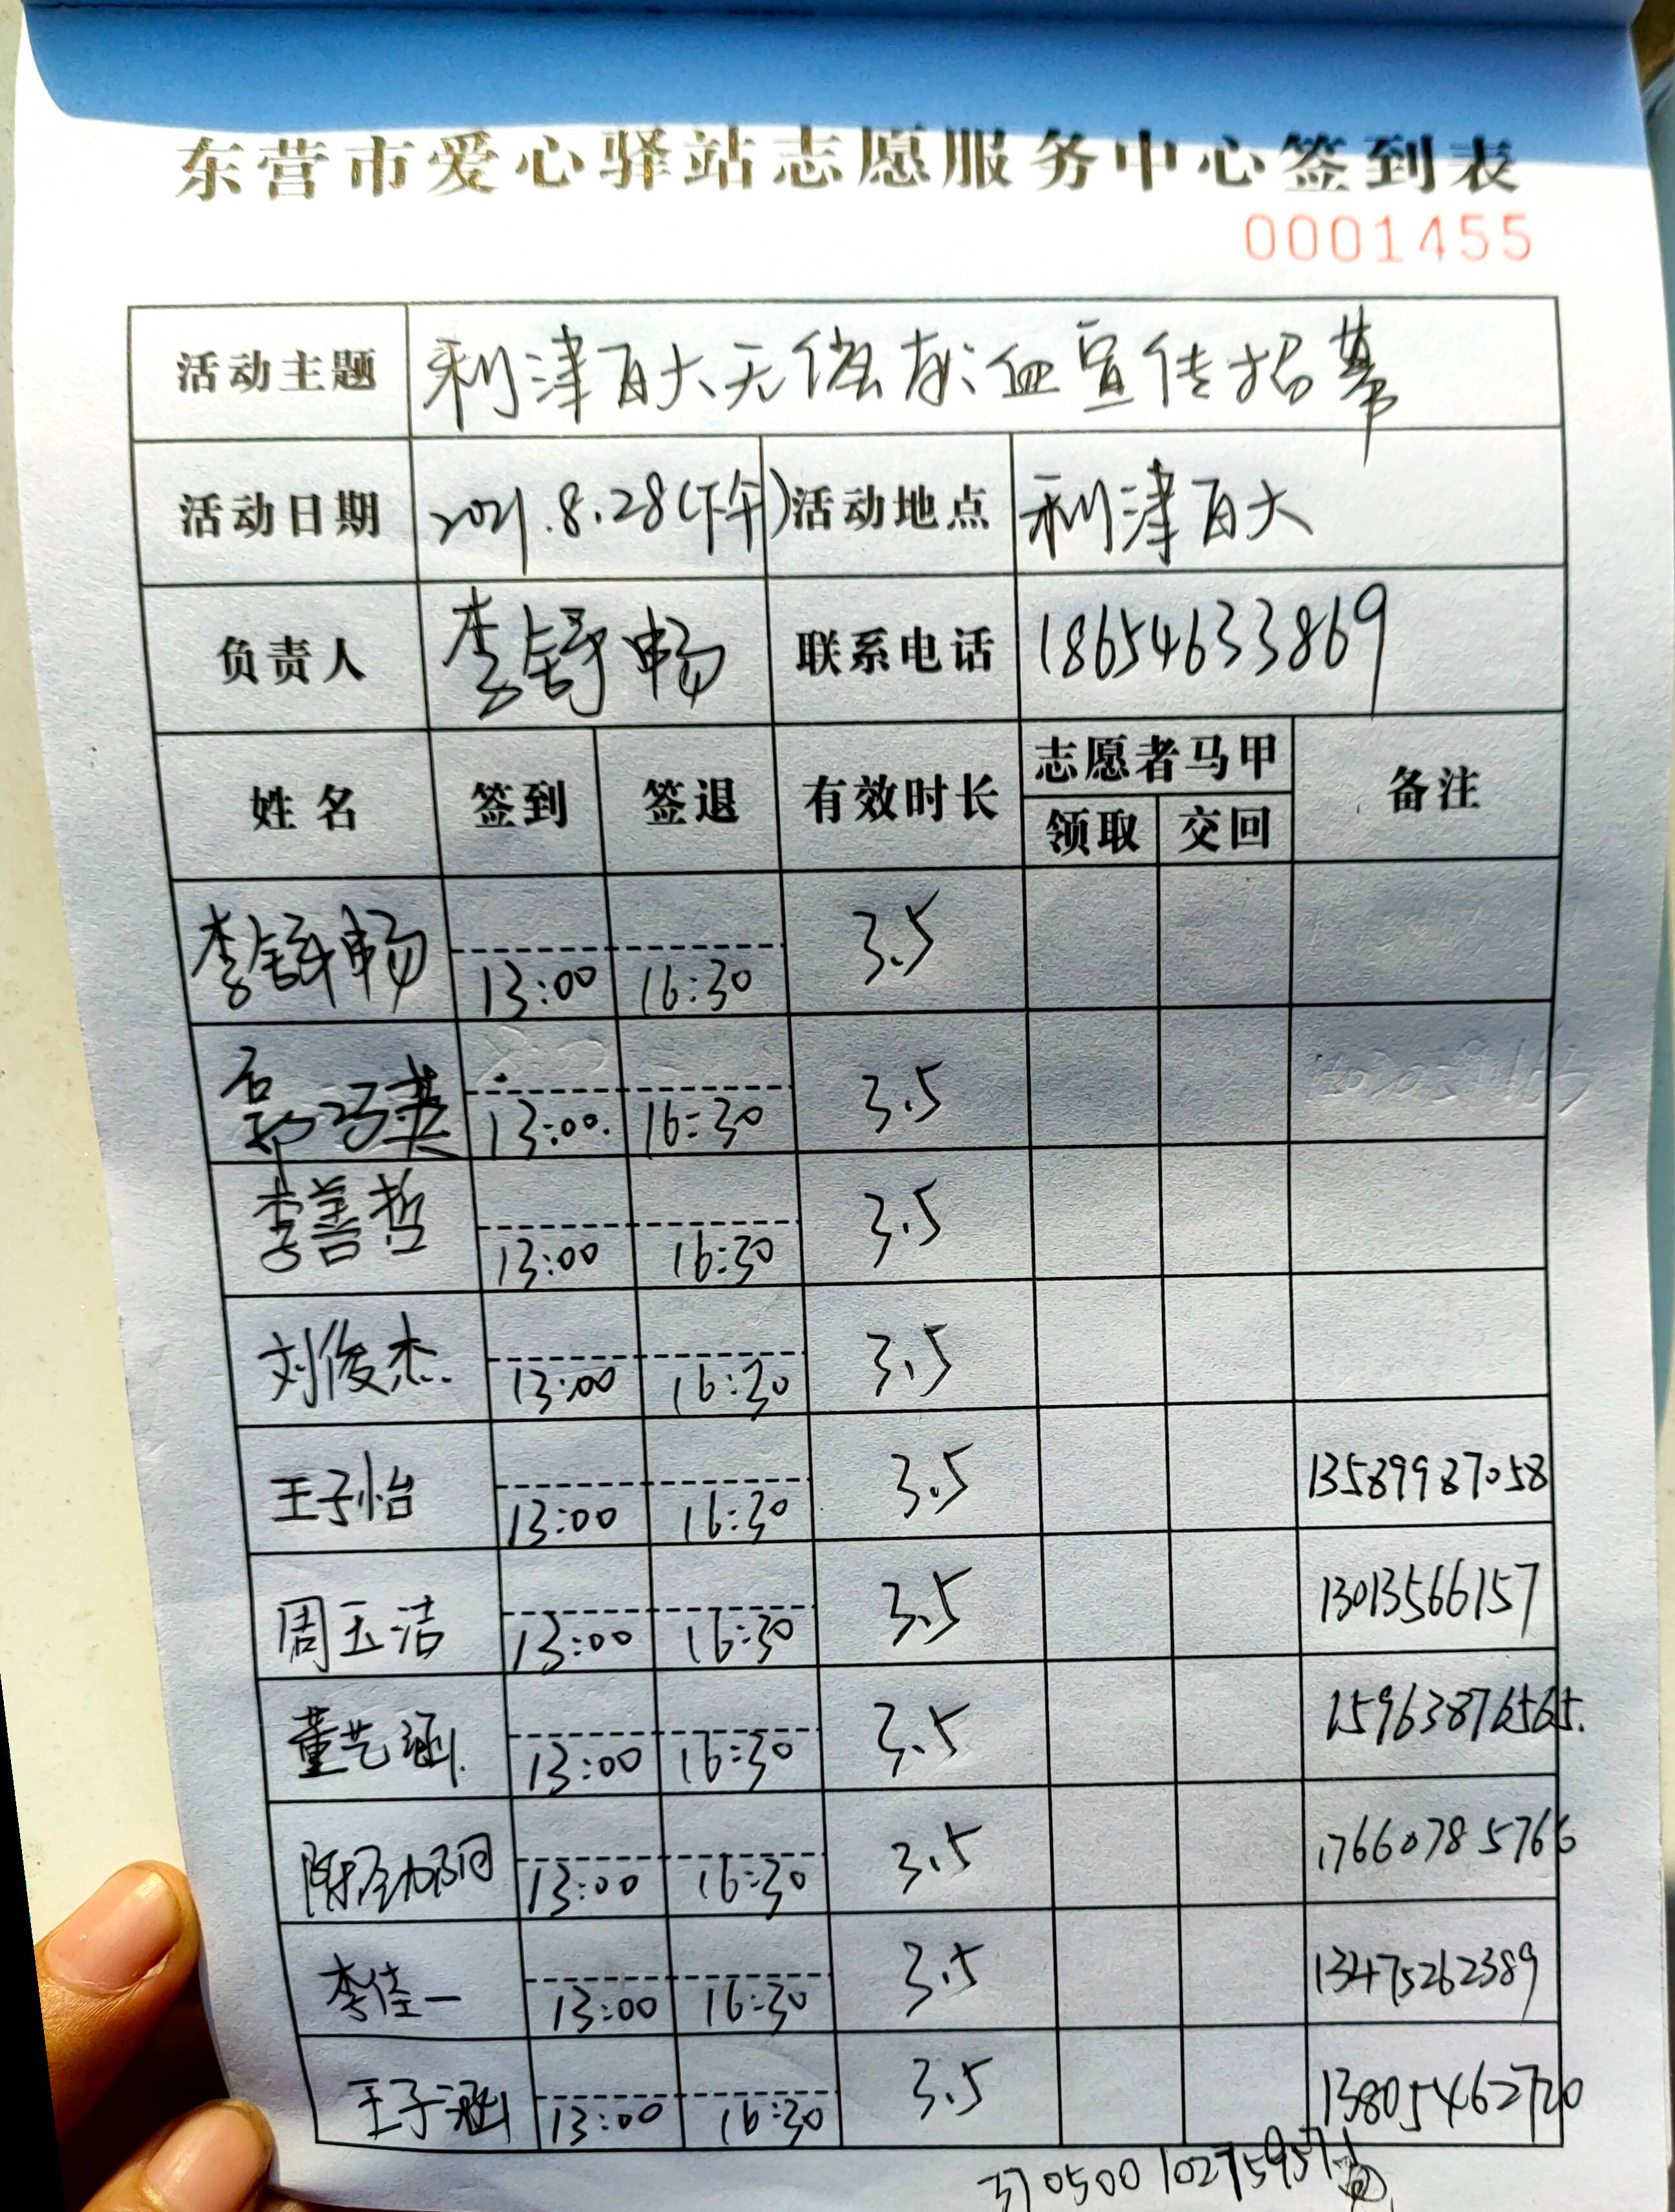 东营市爱心驿站志愿服务中心签到表
0001455
活动主题 利津百大无偿献血宣传招募
活动日期 2021.8.28(下午) 活动地点 利津百大
负责人 李舒畅 联系电话 18654633869
姓名 签到 签退 有效时长 志愿者马甲 备注
领取 交回
李舒畅 13:00 16:30 3.5
13:00. 16:30 3.5
李善哲 13:00 16:30 3.5
刘俊杰. 13:00 16:30 3.5
王子怡 13:00 16:30 3.5 13589987058
周玉洁 13:00 16:30 3.5 13013566157
董艺涵. 13:00 16:30 3.5 15963876565.
13:00 16:30 3.5 17660785766
李佳一 13:00 16:30 3.5 13475262389
王子涵 13:00 16:30 3.5 13805462720